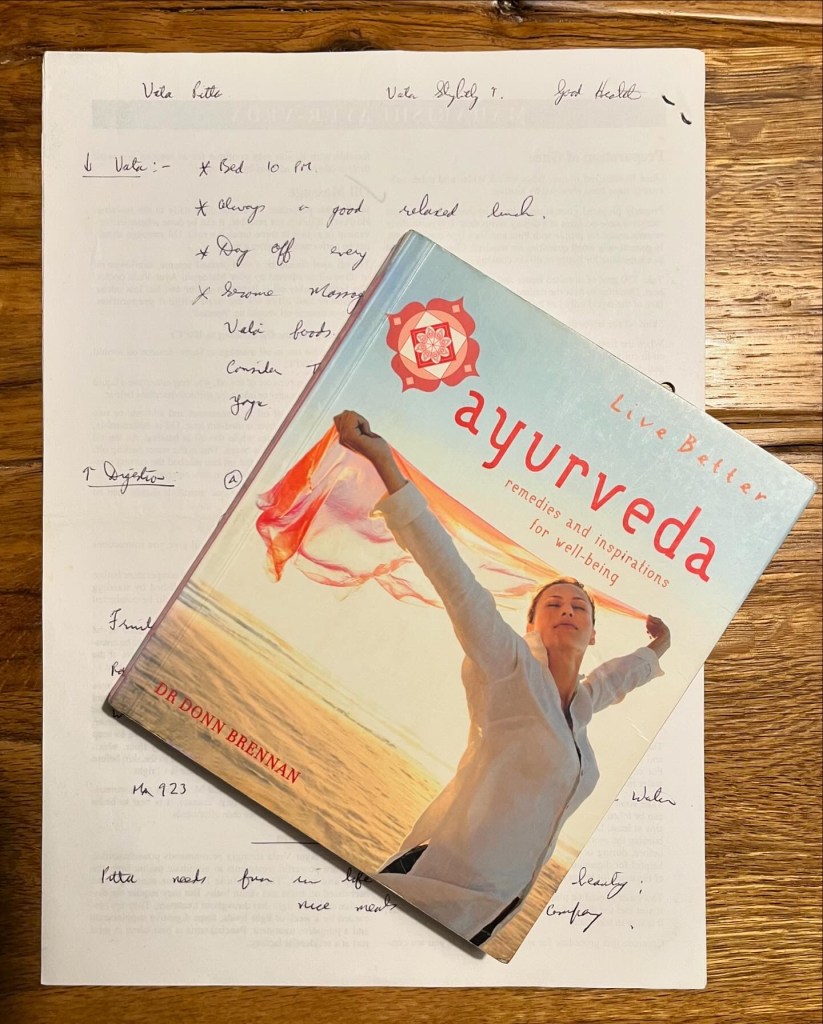 Vata Pitta Vata Slightly ↑. Good Health
↓ Vata :- * Bed 10 PM.
* Always a good relaxed lunch.
* Day off every
* Sesame Massag
Vata foods.
Consider T
Yoga
↑ Digestion a
MA 923
Water
Pitta needs fun in life beauty;
nice meals company.
Live Better
ayurveda
remedies and inspirations
for well-being
DR DONN BRENNAN